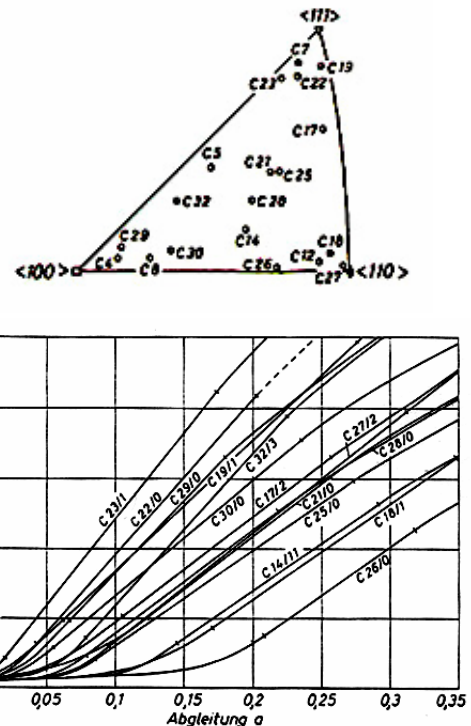 <111>
C7
C19
C23
C22
C17
C5
C21
C25
C32
C28
C14
C29
C30
C18
C12
<100>
C4
C8
C26
C27
<110>
C23/1
C22/0
C29/0
C19/1
C32/3
C30/0
C17/2
C27/2
C28/0
C21/0
C25/0
C14/11
C18/1
C26/0
0,05 0,1 0,15 0,2 0,25 0,3 0,35
Abgleitung a